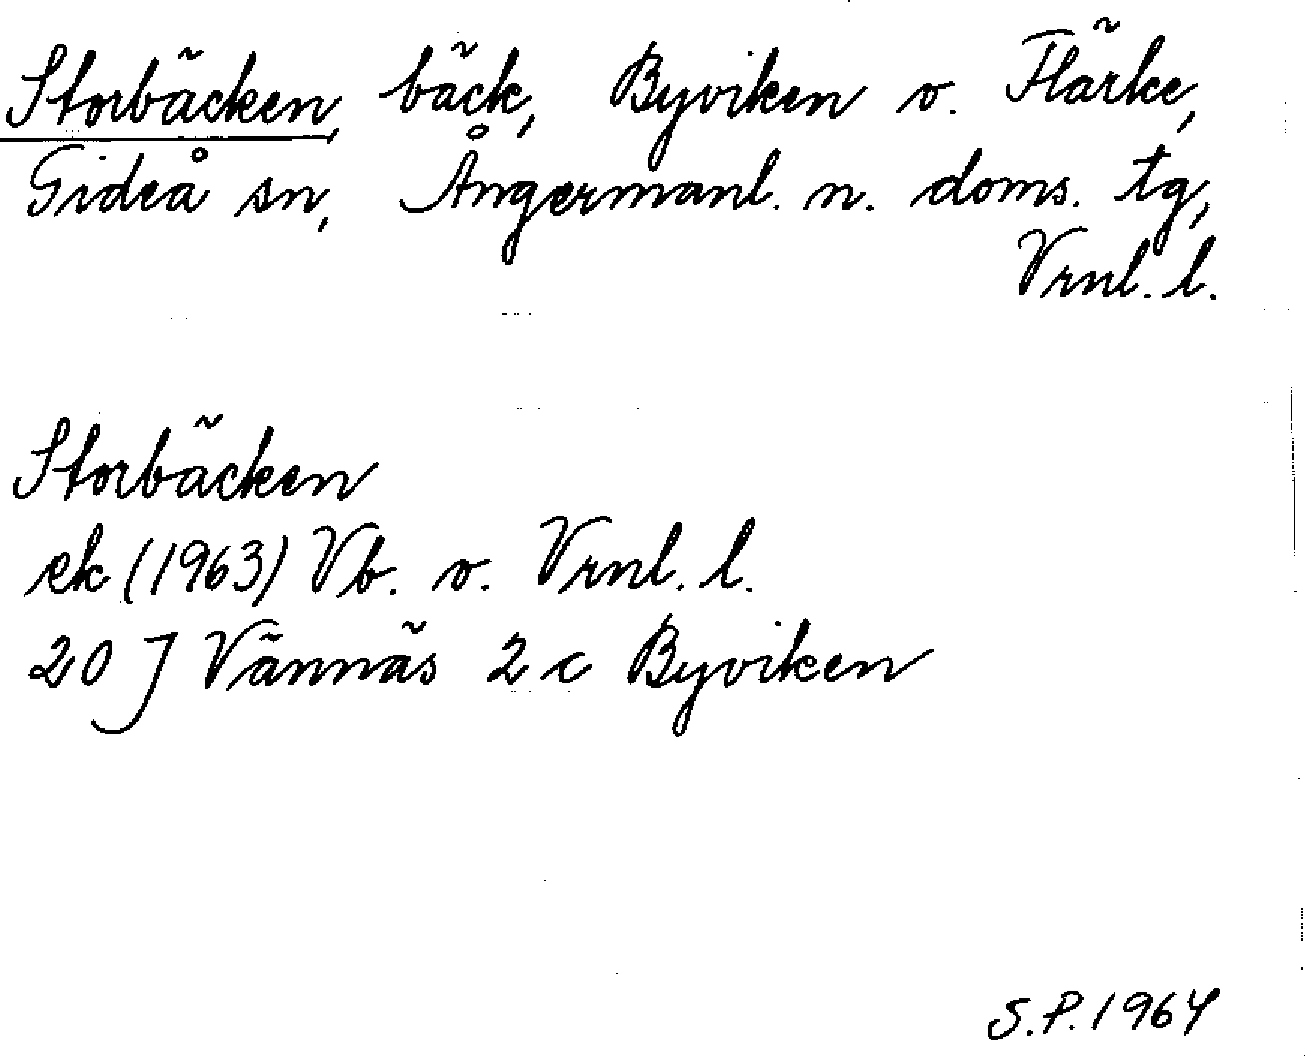 Storbäcken, bäck, Byviken o. Flärke,
Gideå sn, Ångermanl. n. doms. tg,
Vrnl. l.
Storbäcken
ek (1963) Vb. o. Vrnl. l.
20 J Vännäs 2 c Byviken
S.P. 1964